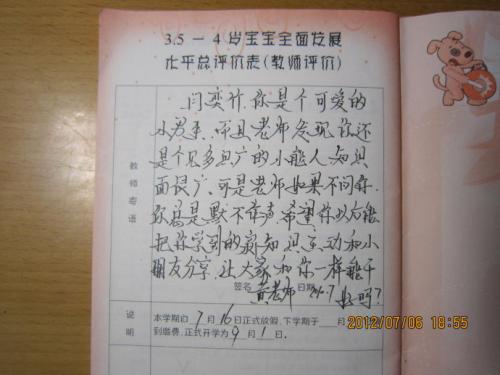 3.5 — 4岁宝宝全面发展
水平总评价表(教师评价)
教师寄语
你是个可爱的
小男生,而且老师发现你还
是个见多识广的小能人,知识
面很广,可是老师如果不问你,
你总是默不作声,希望你以后能
把你学到的新知识主动和小
朋友分享,让大家和你一样能干
签名 黄老师 日期 好吗?
说明
本学期自7月16日正式放假,下学期于 月
到缴费,正式开学为9月1日.
2012/07/06 18:55